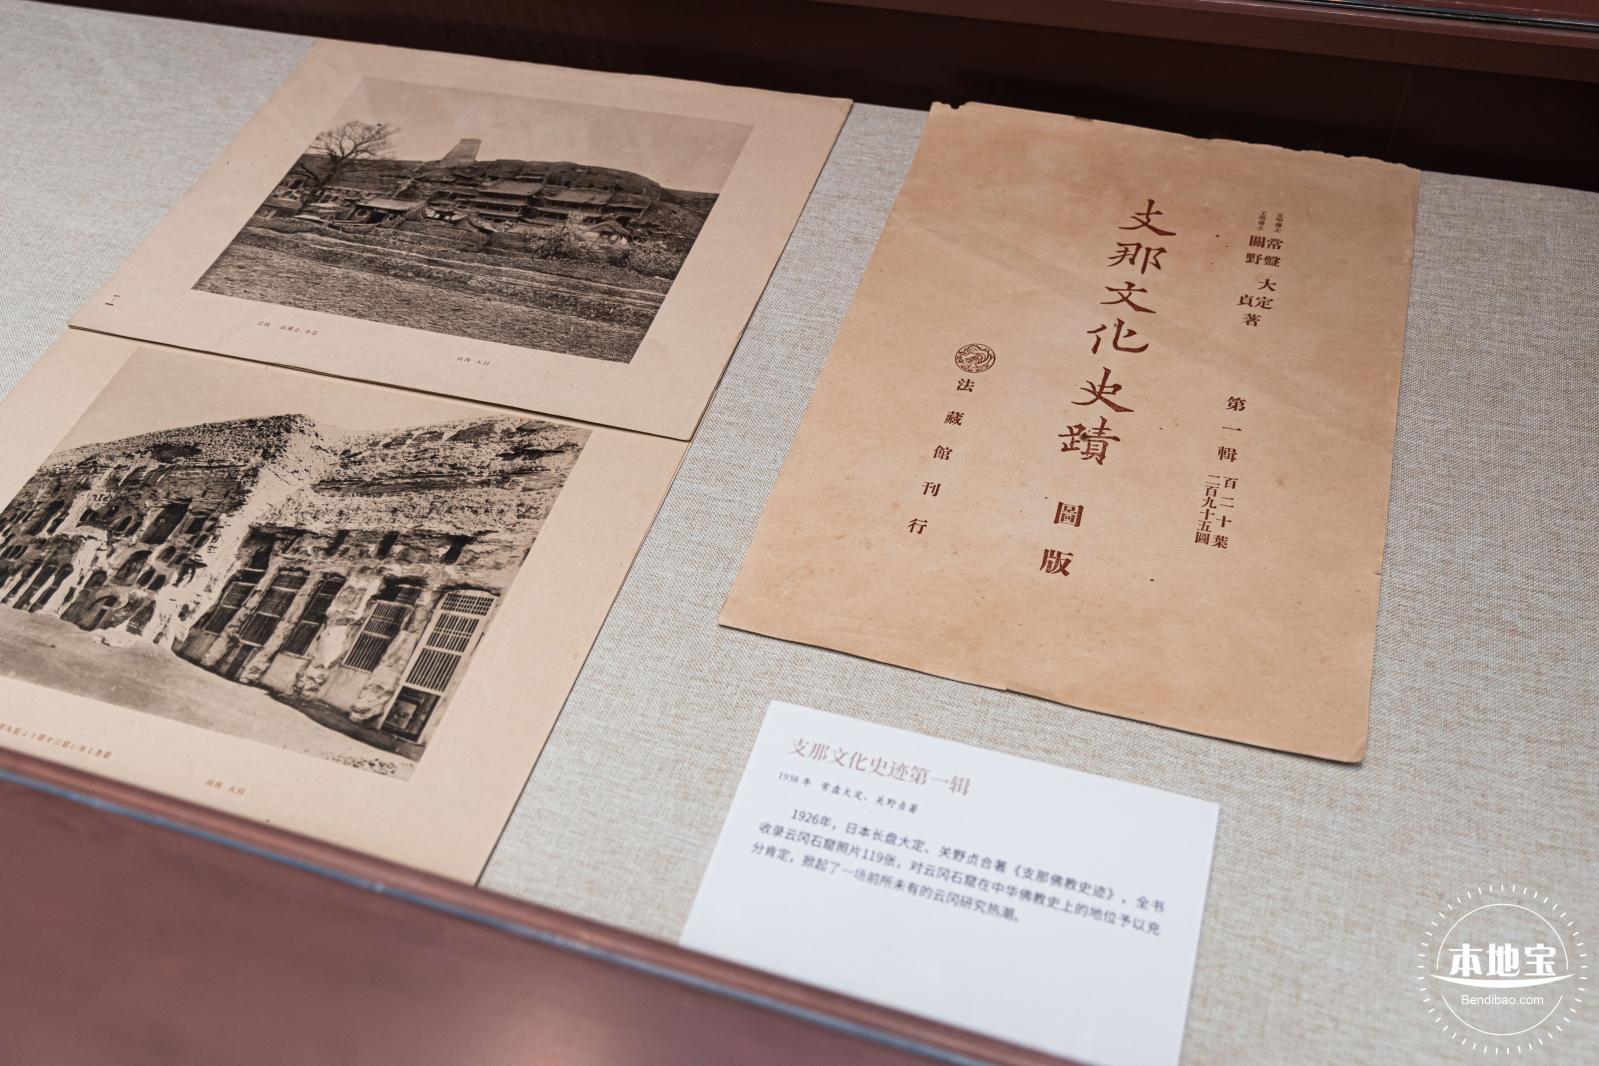 雲岡
山西 大同
第九窟より第十三窟に至る各窟
山西 大同
文學博士 常盤 大定
工學博士 關野 貞 著
第一輯 百二十葉
二百九十五圖
支那文化史蹟 圖版
法藏館刊行
支那文化史迹第一辑
1938年 常盘大定、关野贞著
1926年，日本长盘大定、关野贞合著《支那佛教史迹》，全书
收录云冈石窟照片119张，对云冈石窟在中华佛教史上的地位予以充
分肯定，掀起了一场前所未有的云冈研究热潮。
本地宝
Bendibao.com